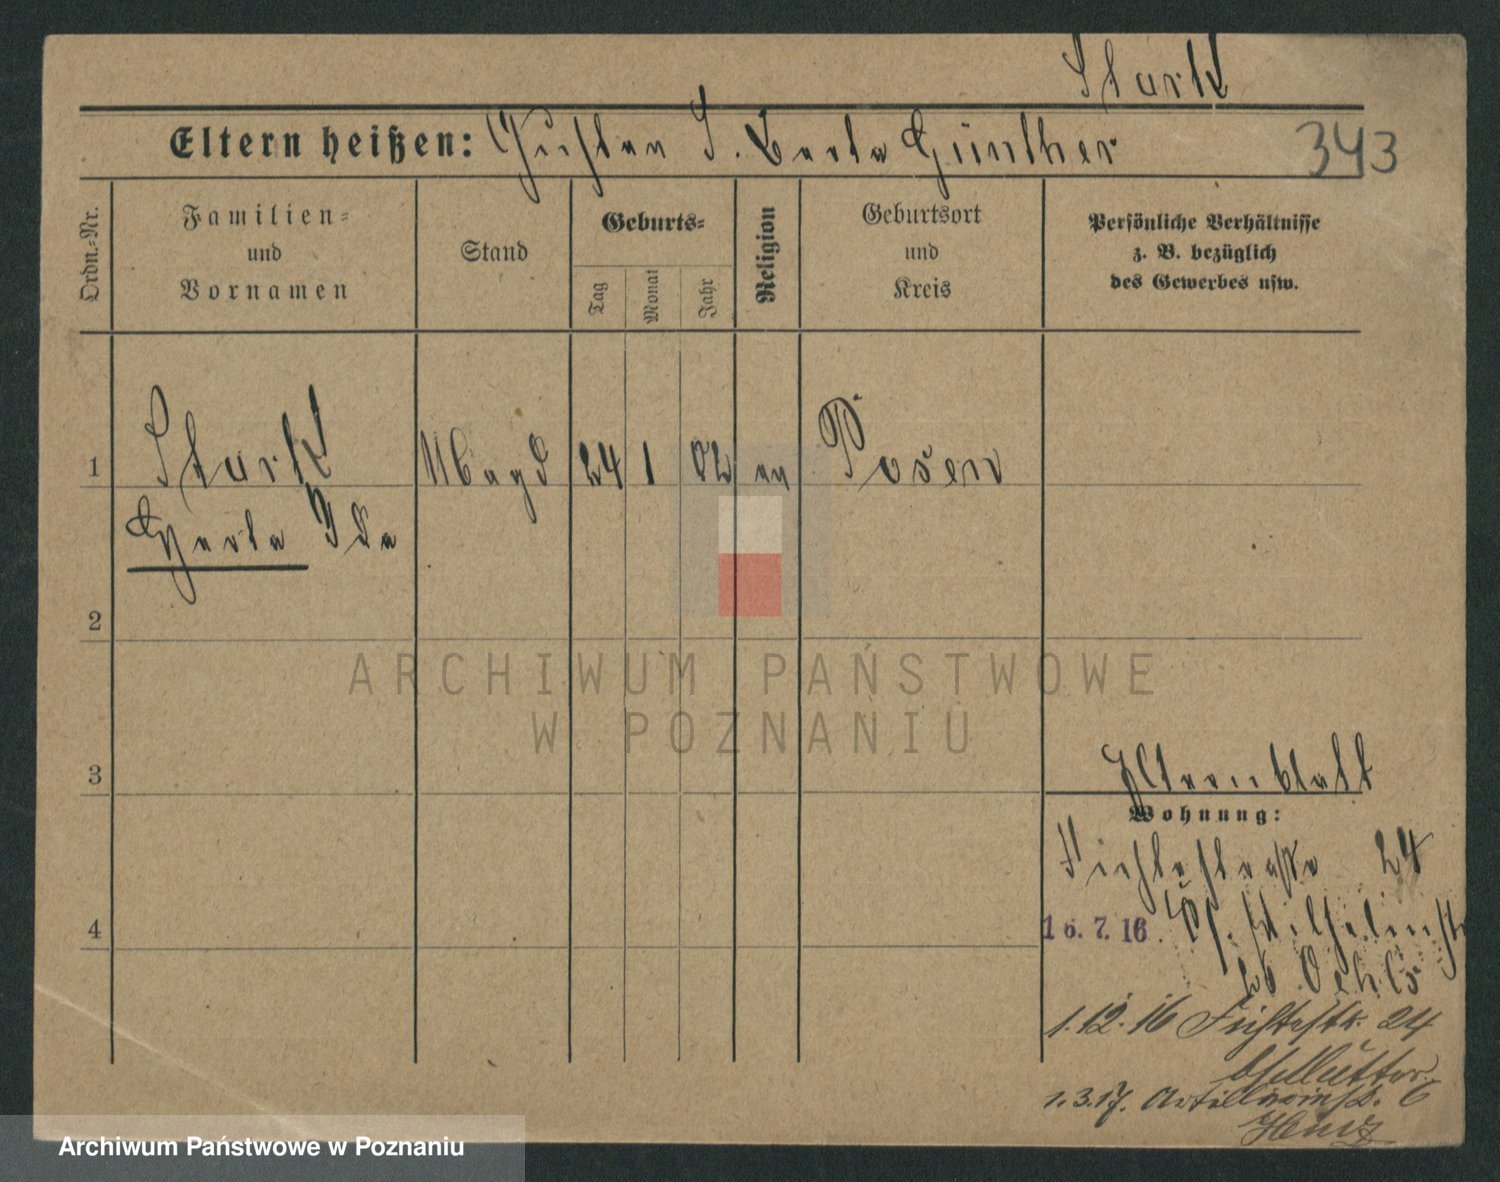 Stark
Eltern heißen: Gustav S. Berta Günther
343
Ordn.=Nr.
Familien=
und
Vornamen
Stand
Geburts=
Tag
Monat
Jahr
Religion
Geburtsort
und
Kreis
Persönliche Verhältnisse
z. B. bezüglich
des Gewerbes usw.
1 Stark Magd 24 1 02 ev Posen
Herta Ida
2
3
Elternblatt
Wohnung:
Fichtestrasse 24
4
16. 7. 16.
1.12.16 Fichtestr. 24
b/Mutter.
1.3.17. Artilleriestr. 6
ARCHIWUM PAŃSTWOWE
W POZNANIU
Archiwum Państwowe w Poznaniu